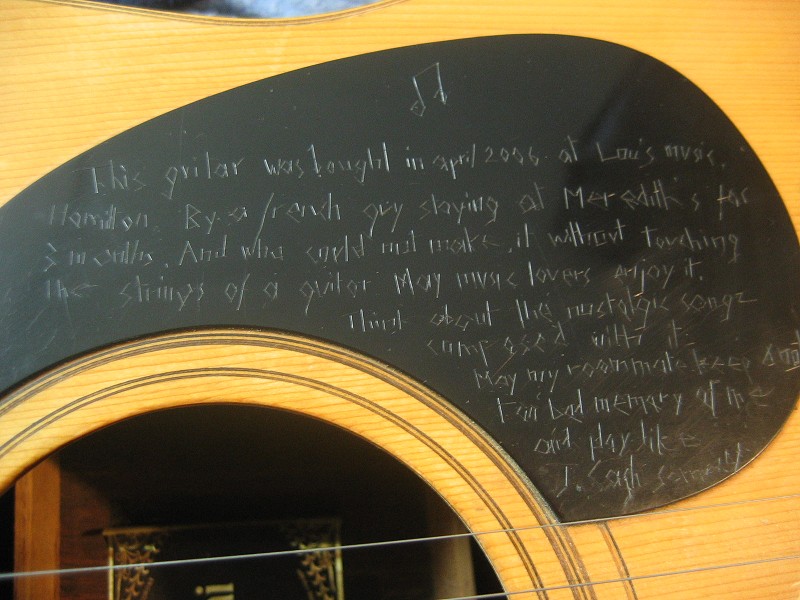 This guitar was bought in april 2006. at Lou's music.
Hamilton. By a french guy staying at Meredith's for
3 months. And who could not make it without touching
the strings of a guitar May music lovers enjoy it.
Think about the nostalgic songz
composed with it.
May my roommate keep
bad memory of me
and play like
J. Cash